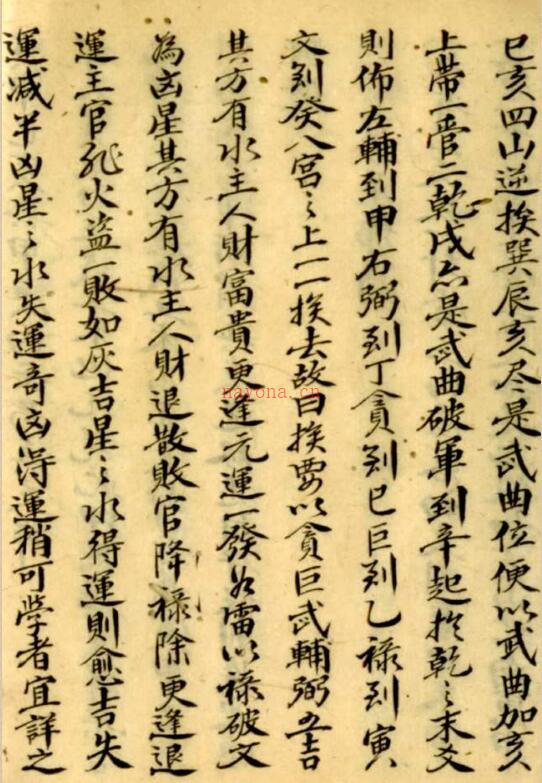 巳亥四山逆挨巽辰亥尽是武曲位便以武曲加亥
上帶一管二乾戌亦是武曲破軍到辛起於乾々末爻
則佈左輔到申右弼到丁貪到巳巨到乙禄到寅
文到癸八宫々上一一挨去故曰挨要以貪巨武輔弼五吉
其方有水主人財富貴更逢元運一發如雷以禄破文
為凶星其方有水主人財退散敗官降禄除更逢退
運主官非火盗一敗如灰吉星々水得運則愈吉失
運减半凶星々水失運奇凶得運稍可學者宜詳之
nayona.cn